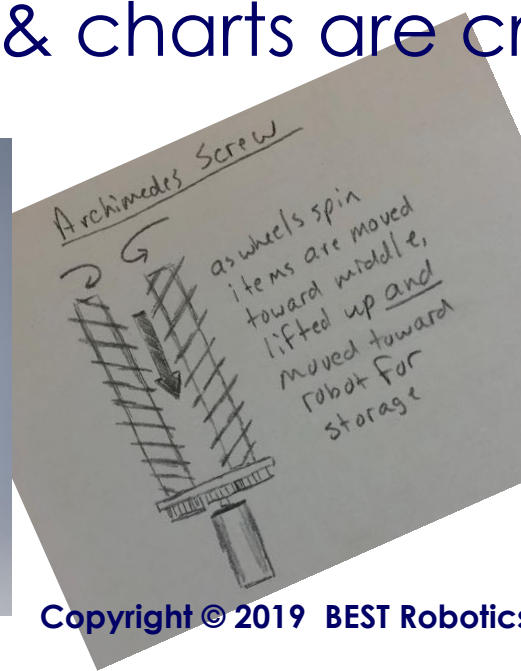 & charts are cr
Archimedes Screw
as wheels spin
items are moved
toward middle,
lifted up and
moved toward
robot for
storage
Copyright © 2019 BEST Robotics